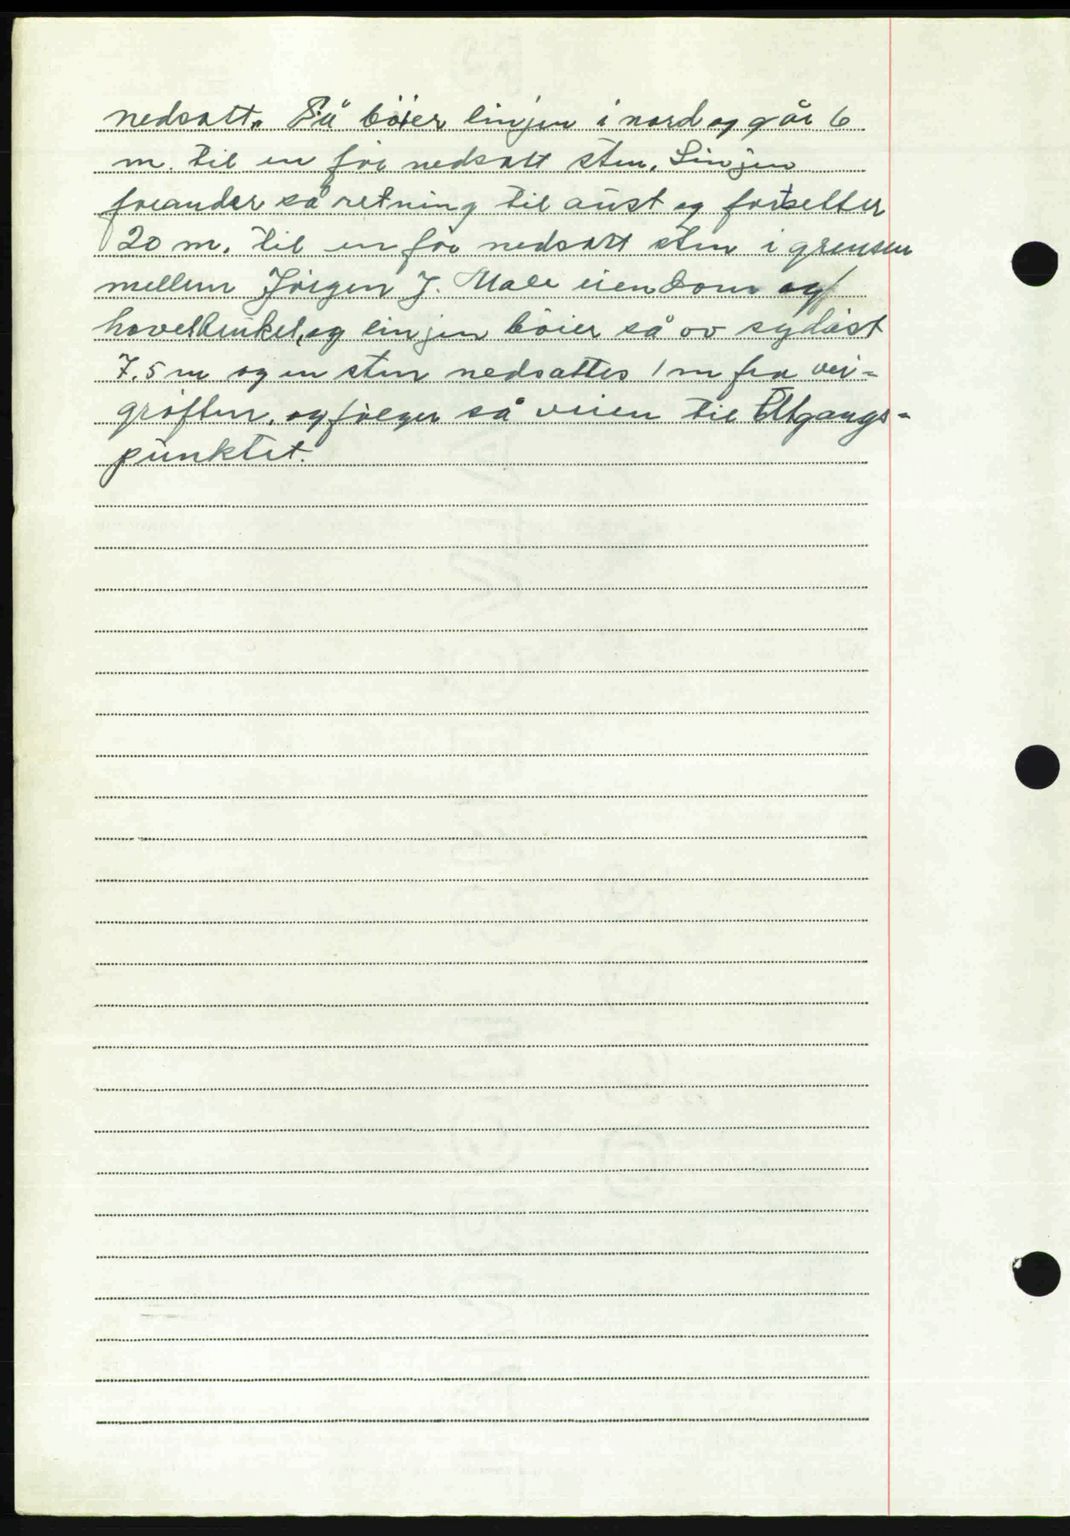 nedsatt. Så böier linjen i nord og går 6
m. til en för nedsatt sten. Linjen
forandrer så retning til aust og fortsetter
20 m. til en för nedsatt sten i grensen
mellem Jörgen J. Male eiendom og
hovelbruket, og linjen böier så ov sydöst
7.5 m og en sten nedsattes 1 m fra vei-
gröften, og fölger så veien til Utgangs-
punktet.